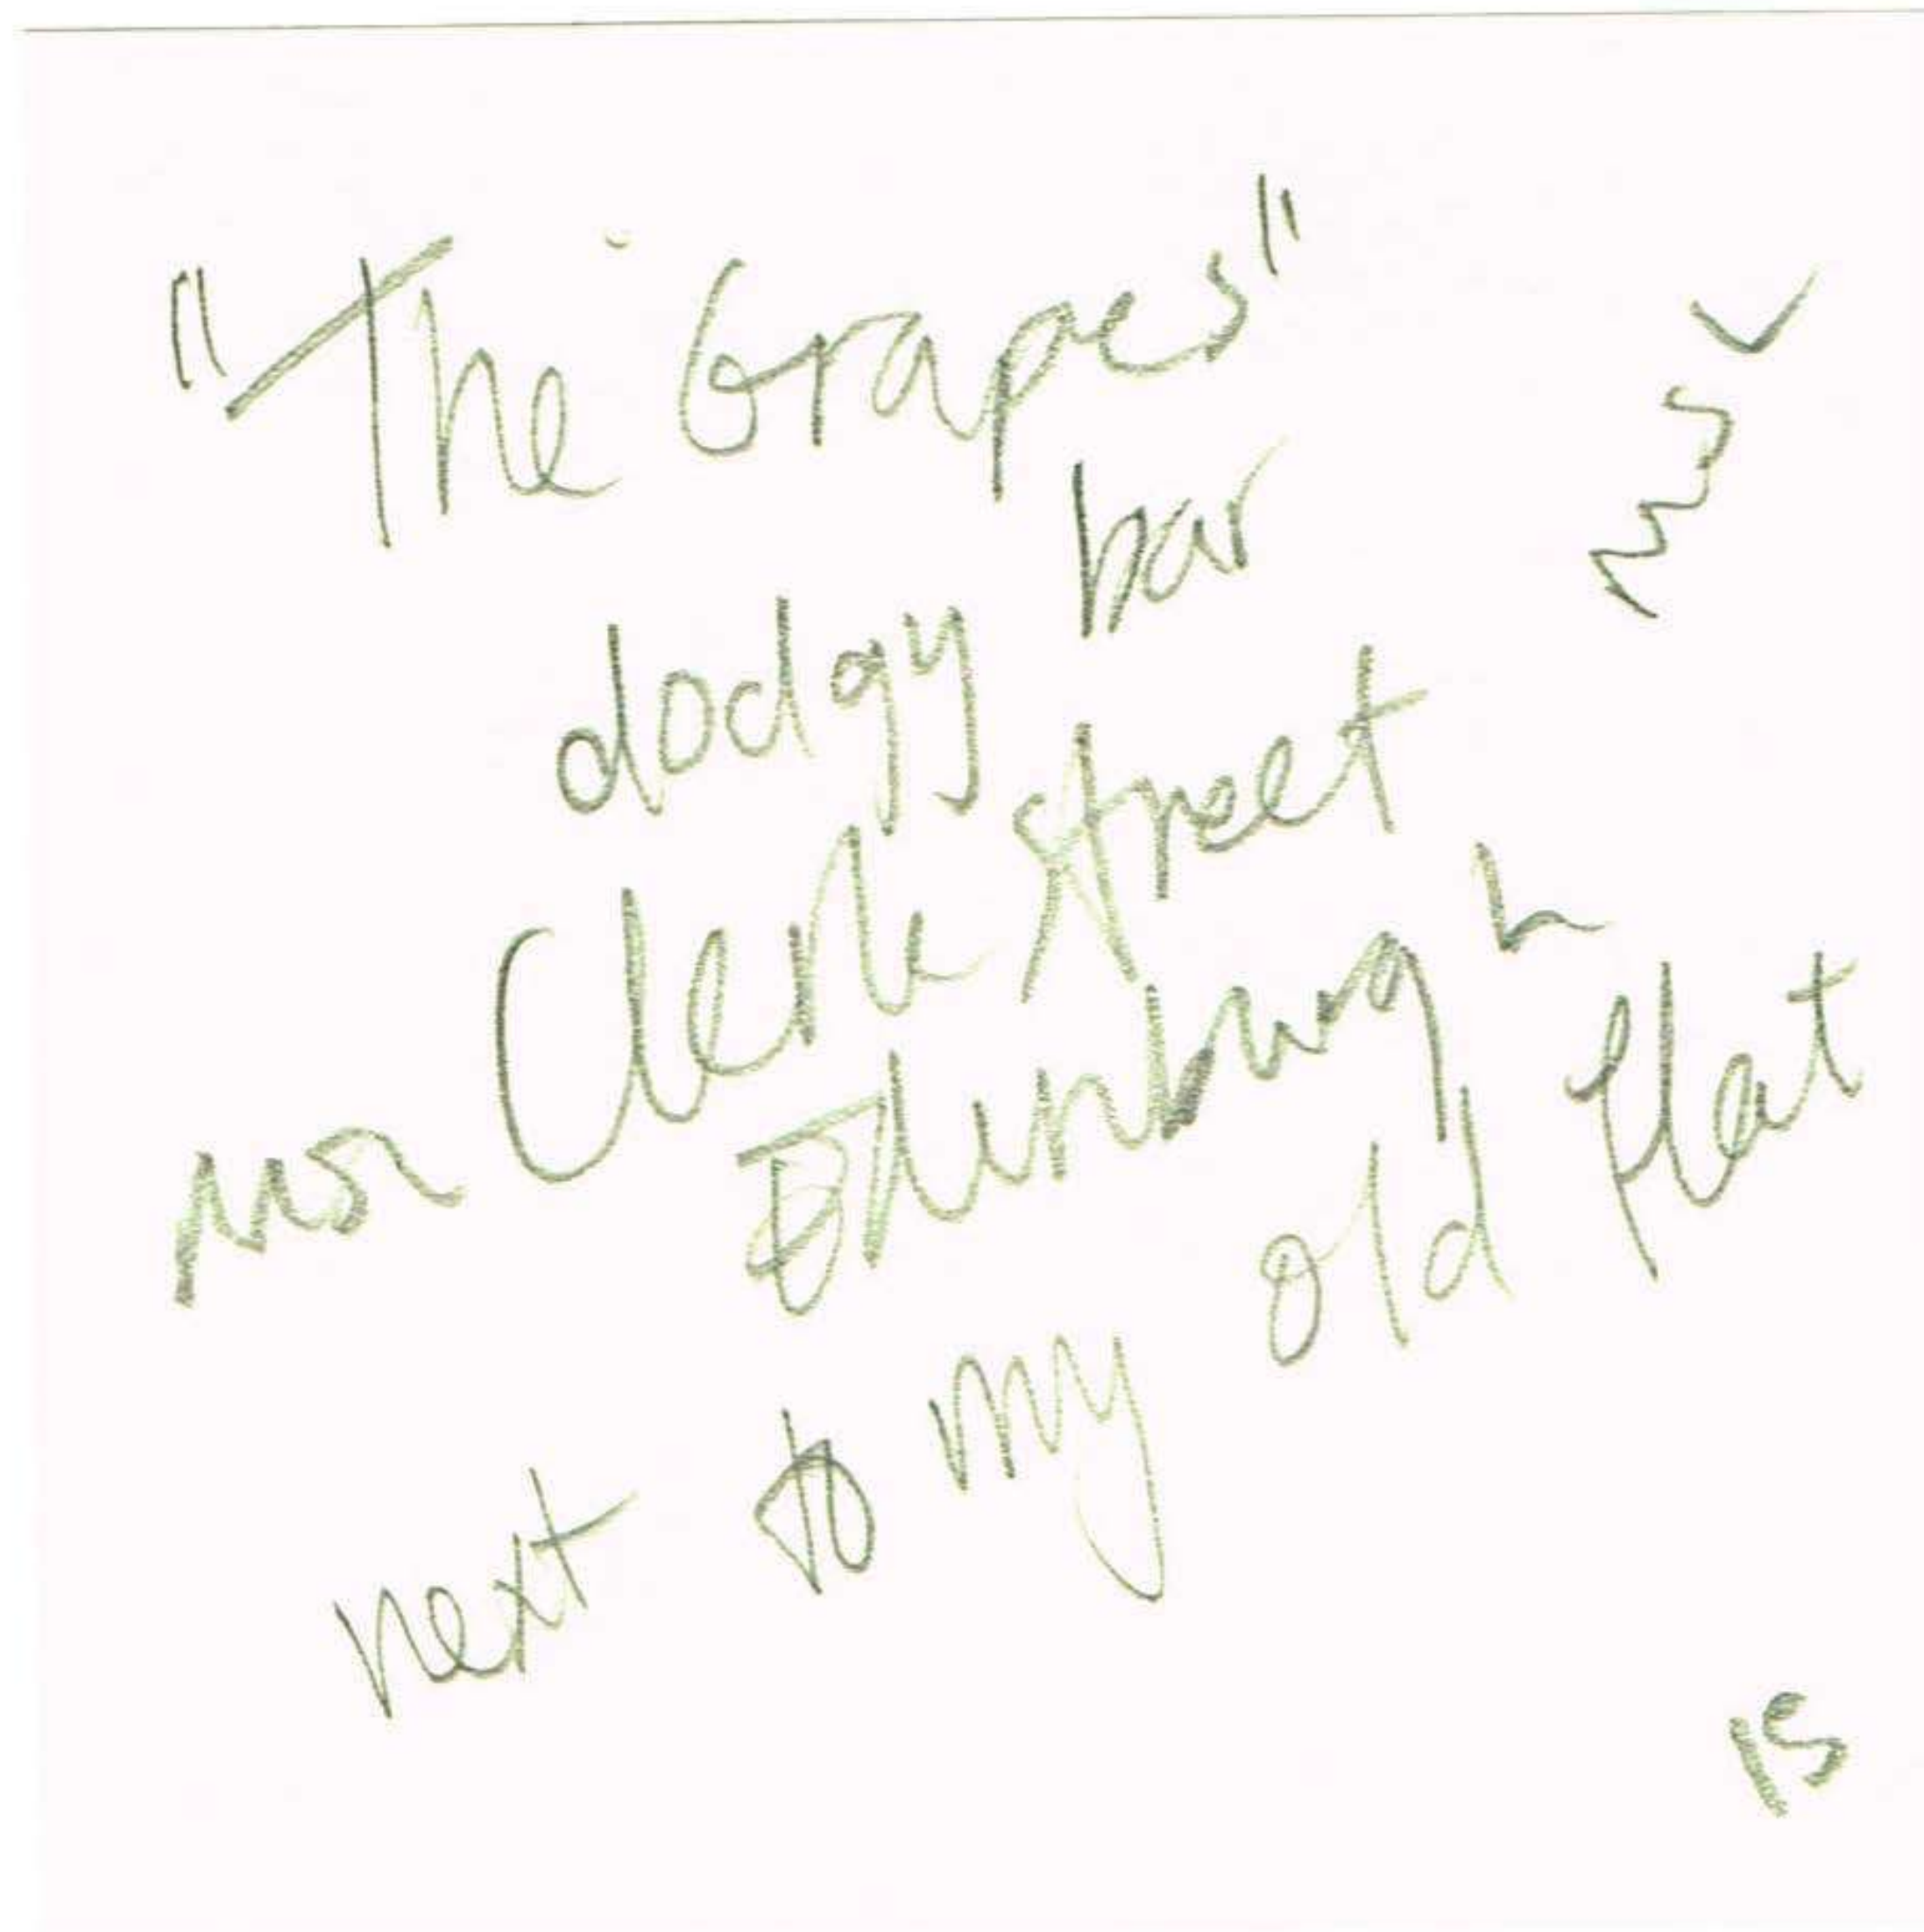 "The Grapes"
dodgy bar
Clerk Street
Edinburgh
next to my old flat
15